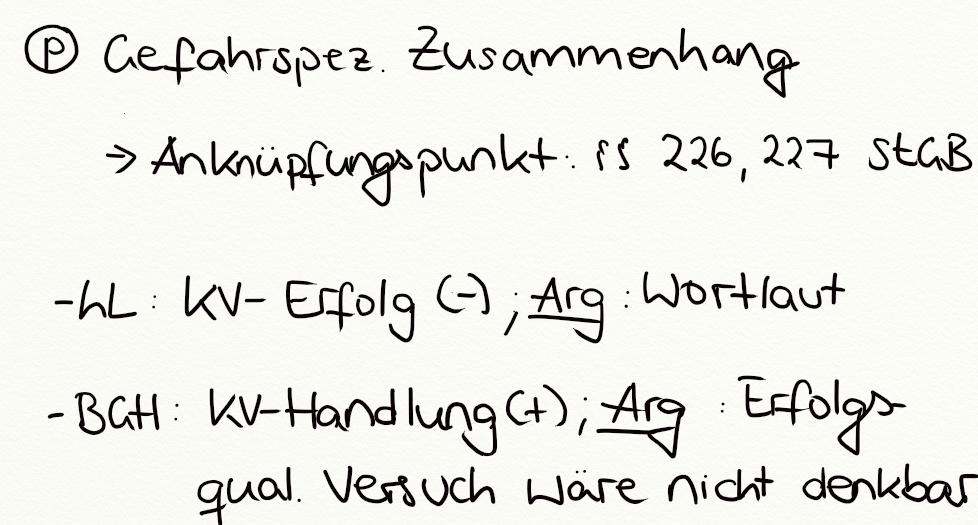 Ⓟ Gefahrspez. Zusammenhang
→ Anknüpfungspunkt: §§ 226, 227 StGB
- hL: KV- Erfolg (-); Arg: Wortlaut
- BGH: KV-Handlung (+); Arg: Erfolgs-
qual. Versuch wäre nicht denkbar